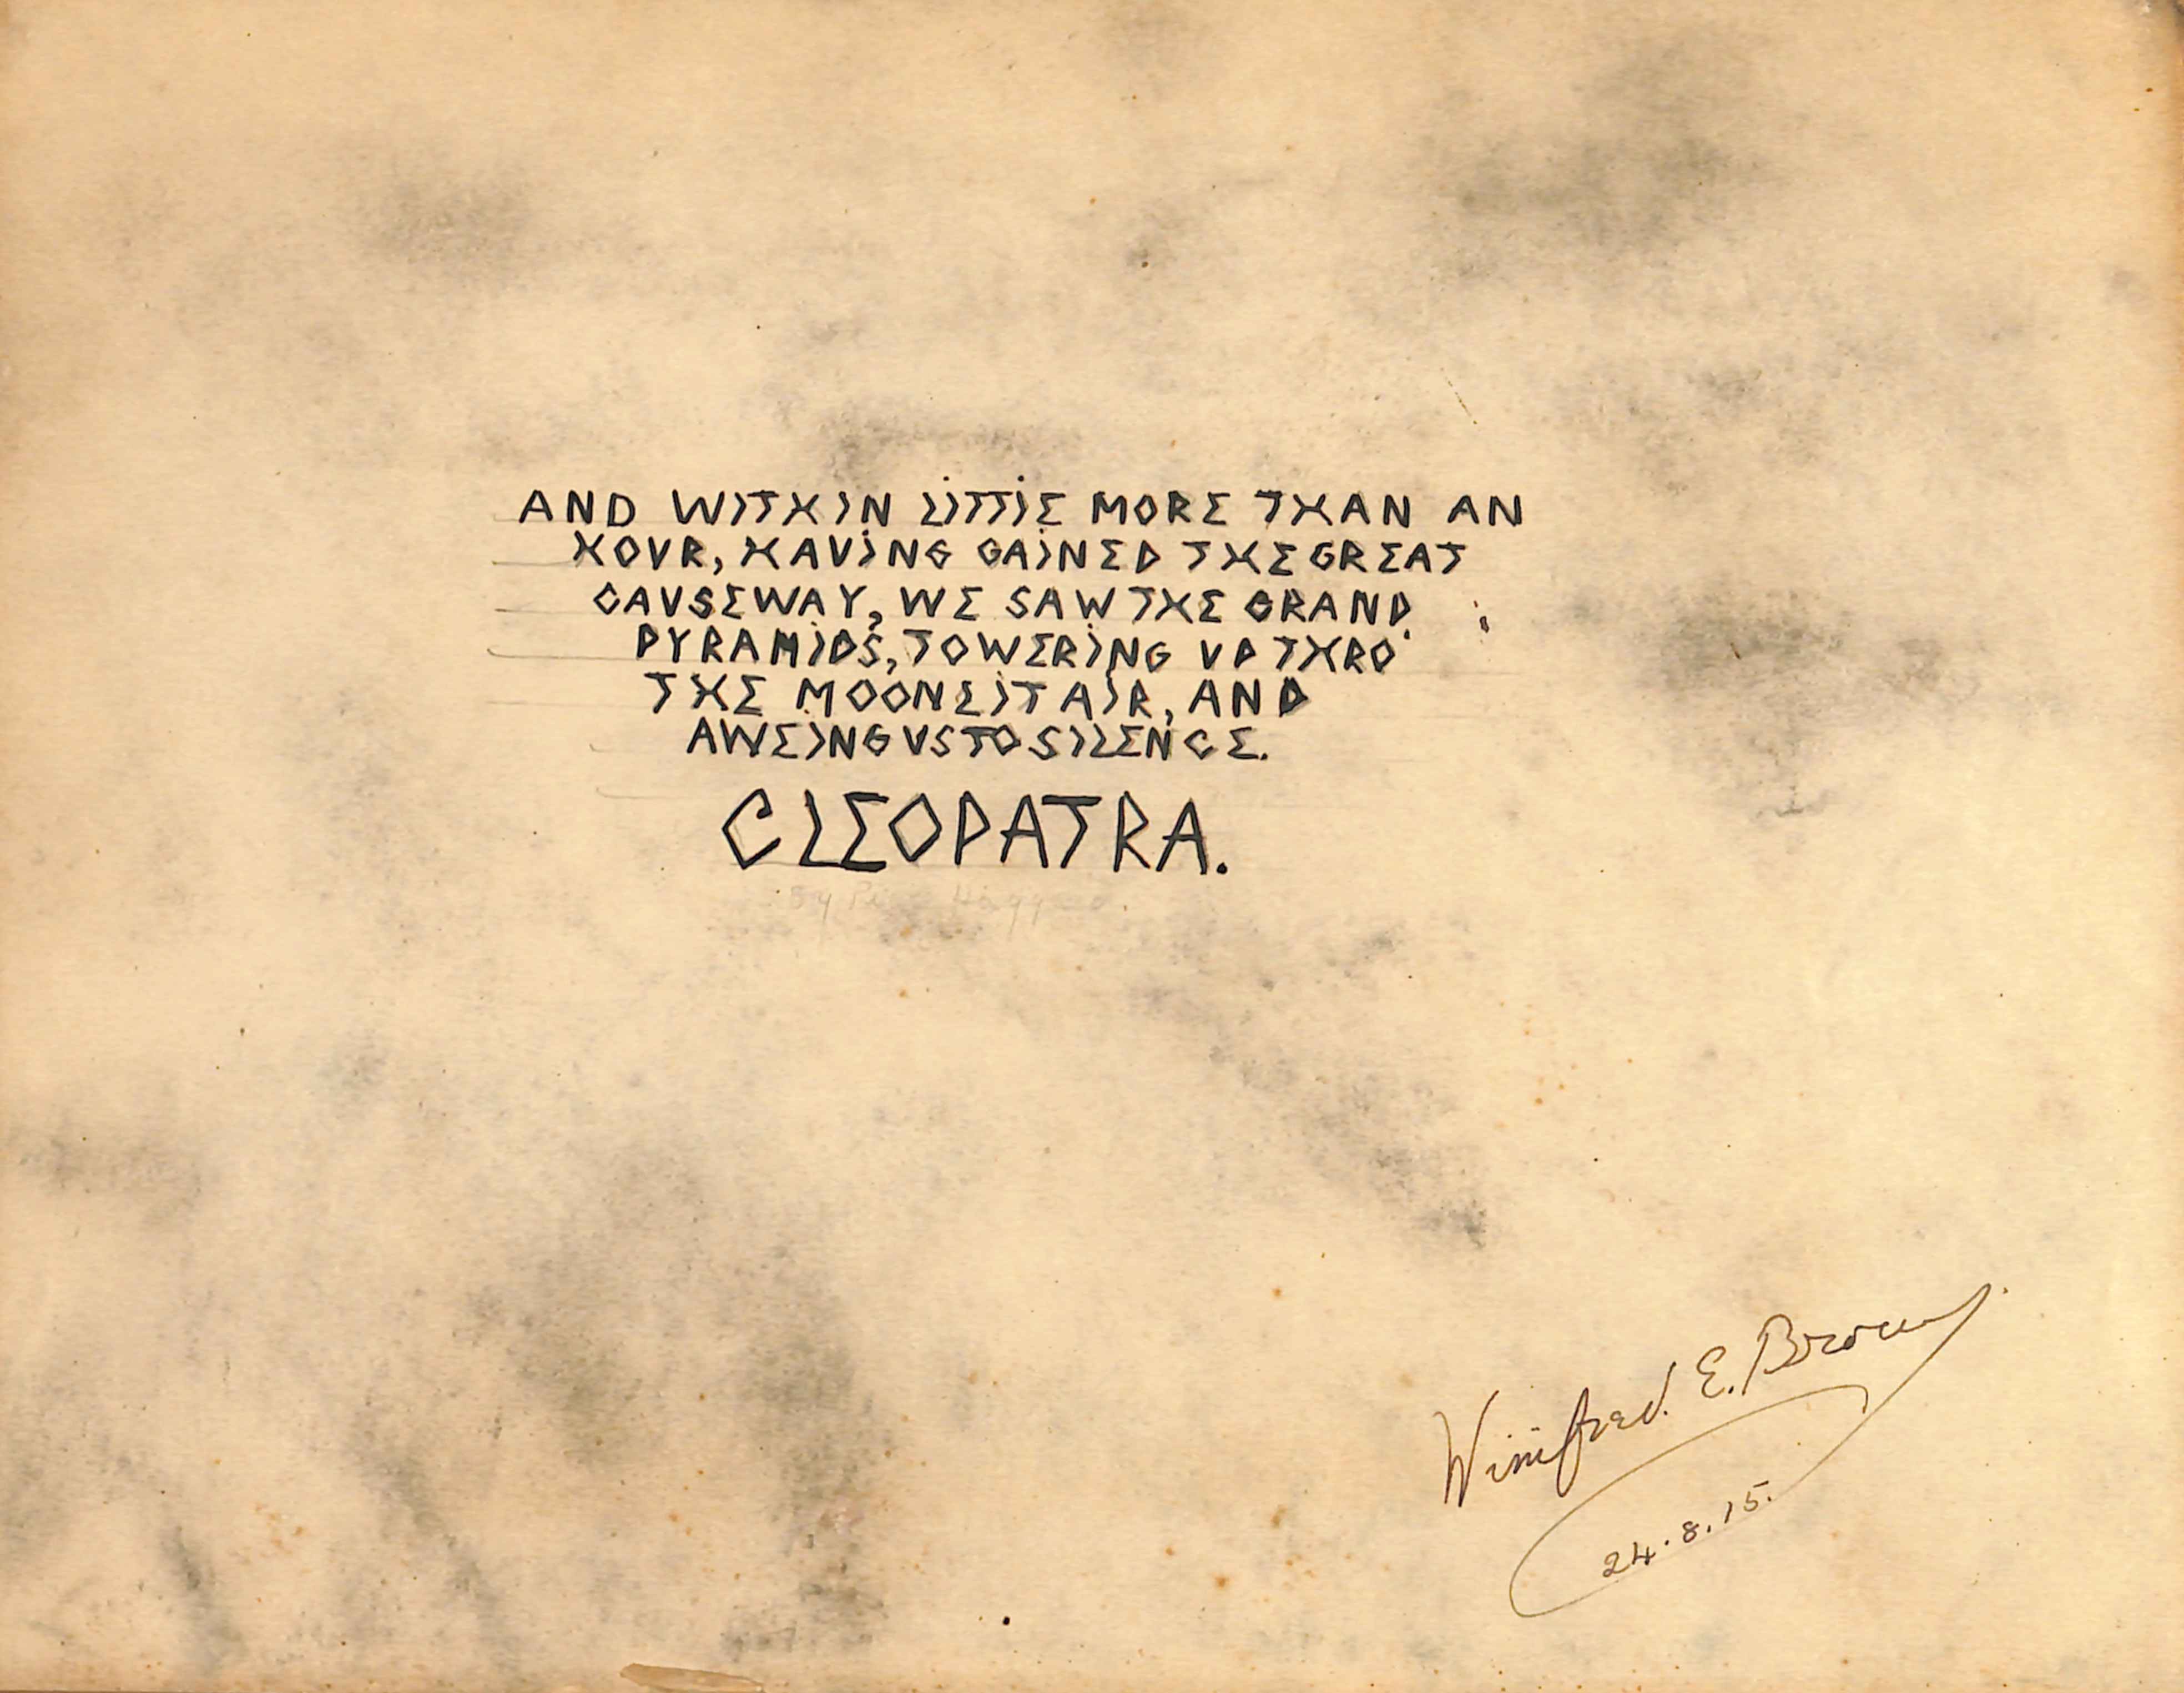 AND WITHIN LITTLE MORE THAN AN
HOVR, HAVING GAINED THE GREAT
CAVSEWAY, WE SAW THE GRAND
PYRAMIDS, TOWERING VP THRO'
THE MOONLIT AIR, AND
AWEING VS TO SILENCE.
CLEOPATRA.
By Haggard.
Winifred. E. Brown
24.8.15.